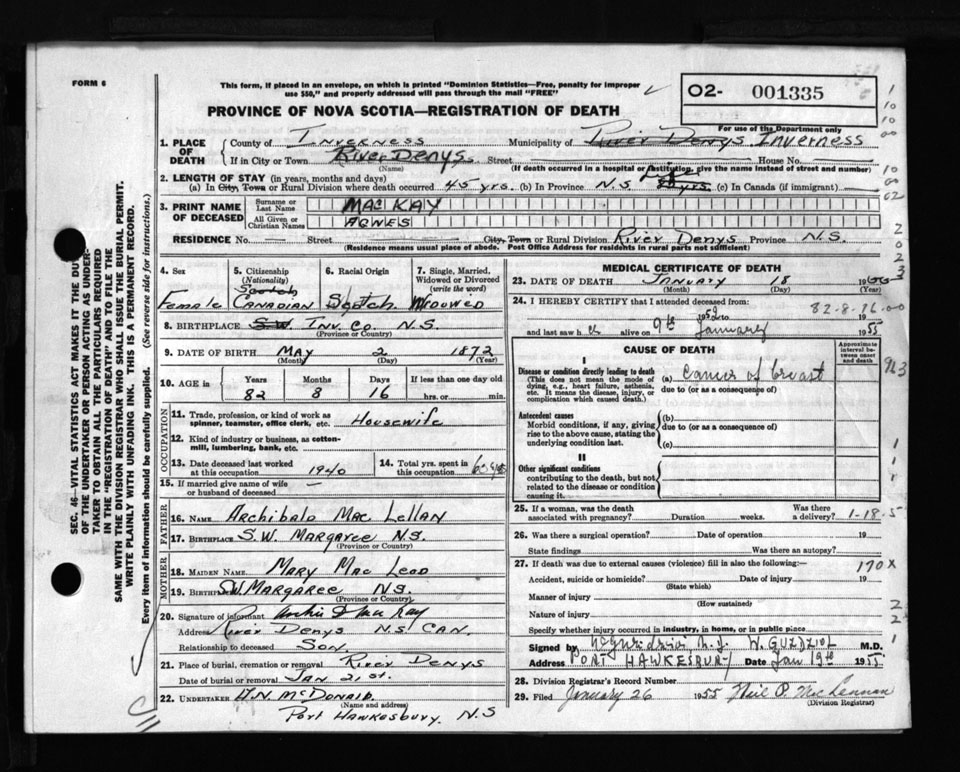 FORM 6
This form, if placed in an envelope, on which is printed "Dominion Statistics—Free, penalty for improper
use $50," and properly addressed will pass through the mail "FREE"
PROVINCE OF NOVA SCOTIA—REGISTRATION OF DEATH
02- 001335
For use of the Department only
1. PLACE OF DEATH
County of INVERNESS Municipality of River Denys Inverness
If in City or Town River Denys Street House No.
(Name) (If death occurred in a hospital or institution, give the name instead of street and number)
2. LENGTH OF STAY (in years, months and days)
(a) In City, Town or Rural Division where death occurred 45 yrs. (b) In Province N.S. yrs. (c) In Canada (if immigrant)
3. PRINT NAME OF DECEASED
Surname or Last Name MACKAY
All Given or Christian Names AGNES
RESIDENCE No. Street City, Town or Rural Division River Denys Province N.S.
(Residence means usual place of abode. Post Office Address for rural parts not sufficient)
4. Sex 5. Citizenship (Nationality) 6. Racial Origin 7. Single, Married, Widowed or Divorced (write the word)
Female Canadian Scotch Widowed
8. BIRTHPLACE S.W. Inv. Co. N.S.
(Province or Country)
9. DATE OF BIRTH May 2 1872
(Month) (Day)
10. AGE in Years Months Days If less than one day old
82 8 16 hrs. or min.
OCCUPATION
11. Trade, profession, or kind of work as
spinner, teamster, office clerk, etc. Housewife
12. Kind of industry or business, as cotton-
mill, lumbering, bank, etc.
13. Date deceased last worked
at this occupation 1940
14. Total yrs. spent in
this occupation
15. If married give name of wife
or husband of deceased —
FATHER
16. NAME Archibald MacLellan
17. BIRTHPLACE S.W. Margaree N.S.
(Province or Country)
MOTHER
18. MAIDEN NAME Mary MacLeod
19. BIRTHPLACE S.W. Margaree N.S.
(Province or Country)
20. Signature of informant Archie D MacKay
Address River Denys N.S. CAN.
Relationship to deceased Son
21. Place of burial, cremation or removal River Denys
Date of burial or removal Jan 21st.
22. UNDERTAKER McDonald
(Name and address)
Port Hawkesbury, N.S
MEDICAL CERTIFICATE OF DEATH
23. DATE OF DEATH January 18 19
(Month) (Day) (Year)
24. I HEREBY CERTIFY that I attended deceased from: 82-8-16-00
1952 to
and last saw h alive on 9th January 1955
CAUSE OF DEATH
Approximate interval between onset and death
I
Disease or condition directly leading to death
(This does not mean the mode of
dying, e.g., heart failure, asthenia,
etc. It means the disease, injury, or
complication which caused death.)
(a) Cancer of breast
due to (or as a consequence of)
Antecedent causes
Morbid conditions, if any, giving
rise to the above cause, stating the
underlying condition last.
(b)
due to (or as a consequence of)
(c)
II
Other significant conditions
contributing to the death, but not
related to the disease or condition
causing it.
25. If a woman, was the death
associated with pregnancy? Duration weeks. Was there
a delivery? 1-18-5
26. Was there a surgical operation? Date of operation 19
State findings Was there an autopsy?
27. If death was due to external causes (violence) fill in also the following:— 170X
Accident, suicide or homicide? Date of injury 19
(State which)
Manner of injury
(How sustained)
Nature of injury
Specify whether injury occurred in industry, in home, or in public place
Signed by W. GUZDZIOL M.D.
Address PORT HAWKESBURY Date Jan 19th 1955
28. Division Registrar's Record Number
29. Filed January 26 1955 Neil P. MacLennan
(Division Registrar)
SEC. 46—VITAL STATISTICS ACT MAKES IT THE DUTY
OF THE UNDERTAKER OR PERSON ACTING AS UNDER-
TAKER TO OBTAIN ALL THE PARTICULARS REQUIRED
IN THE "REGISTRATION OF DEATH" AND TO FILE THE
SAME WITH THE DIVISION REGISTRAR WHO SHALL ISSUE THE BURIAL PERMIT.
WRITE PLAINLY WITH UNFADING INK. THIS IS A PERMANENT RECORD.
Every item of information should be carefully supplied. (See reverse side for instructions.)